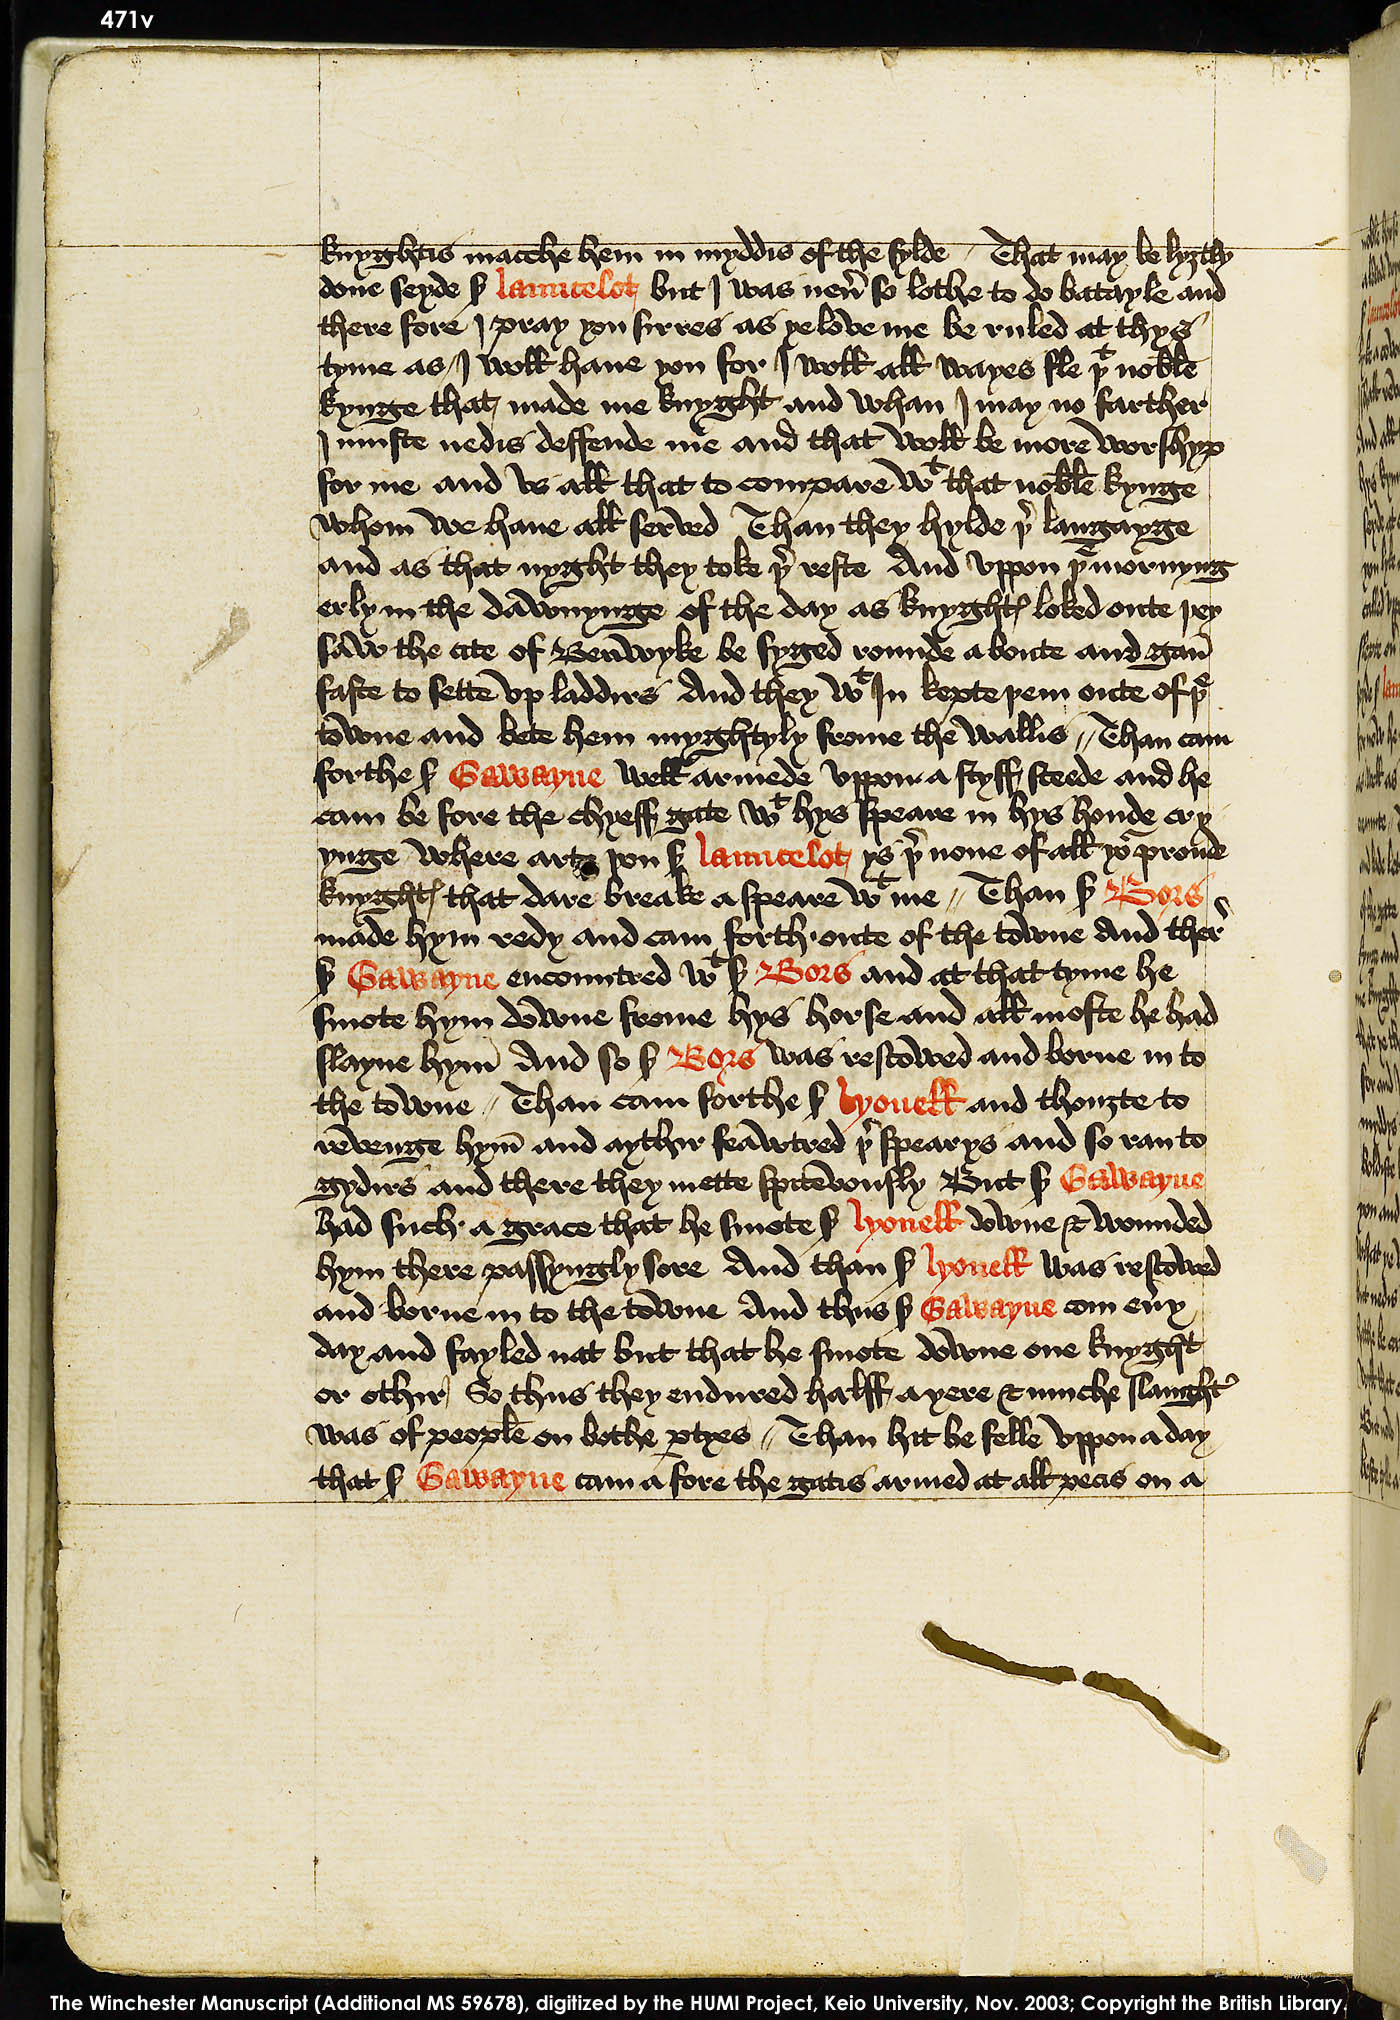 471v
knyghtis macche hem in myddis of the fylde // That may be lyȝtly
done seyde ẜ launcelot but I was neū so lothe to do batayle and
there fore I pray you sirres as ye love me be ruled at thys
tyme as I woll have you for I woll all wayes fle þͭ noble
kynge that made me knyght and whan I may no farther
I muste nedis deffende me and that woll be more worshyp
for me and us all that to compare wͭ that noble kynge
whom we have all serued Than they hylde þʳ langayge
and as that nyght they toke þʳ reste And uppon þͤ mornyng
erly in the dawnynge of the day as knyghtꝭ loked oute þey
saw the cite of Benwyke be syged rounde a boute and gan̄
faste to sette up laddirs And they wͭ In kepte þem oute of þͤ
towne and bete hem myghtyly frome the wallis // Than cam
forthe ẜ Gawayne well armede uppon a styff steede and he
cam be fore the chyeff gate wͭ hys speare in hys honde cry
ynge where art you ẜ launcelot ys þʳ none of all yoʳ proude
knyghtꝭ that dare breake a speare wͭ me // Than ẜ Bors
made hym redy and cam forth oute of the towne And ther
ẜ Gawayne encountred wͭ ẜ Bors and at that tyme he
smote hym downe frome hys horse and all moste he had
slayne hym̄ And so ẜ Bors was rescowed and borne in to
the towne // Than cam forthe ẜ lyonell and thouȝte to
revenge hym̄ and aythir feawtred þʳ spearys and so ran to
gydirs and there they mette spitevously But ẜ Gawayne
had such a grace that he smote ẜ lyonell downe & wounded
hym there passyngly sore And than ẜ lyonell was rescowed
and borne in to the towne And thus ẜ Gawayne com eūy
day and fayled nat but that he smote downe one knyght
or othir So thus they endured halff a yere & muche slaughtˀ
was of people on bothe ꝑtyes // Than hit be felle uppon a day
that ẜ Gawayne cam a fore the gatis armed at all pecis on a
The Winchester Manuscript (Additional MS 59678), digitized by the HUMI Project, Keio University, Nov. 2003; Copyright the British Library.